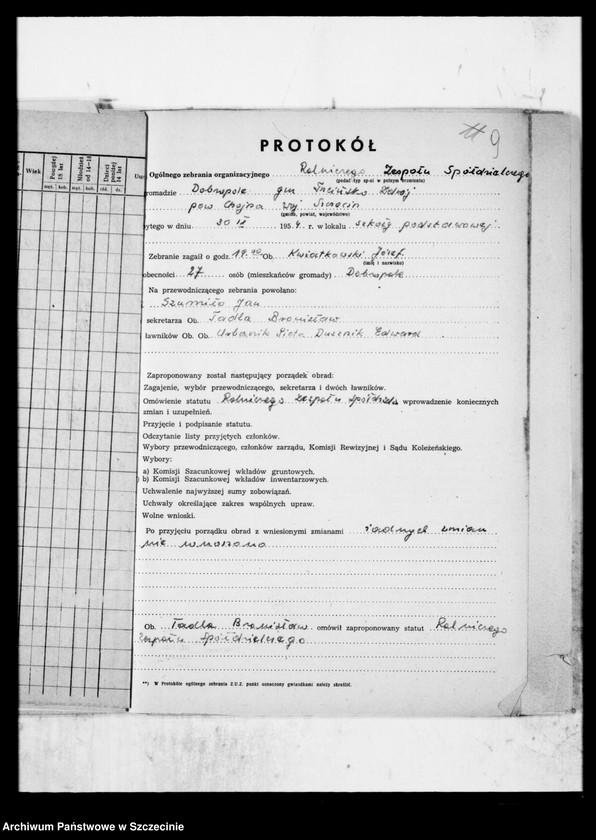 Wiek
Powyżej 18 lat
Młodzież od 14-18
Dzieci poniżej 14 lat
męż. kob. męż. kob. chł. dz.
9
PROTOKÓŁ
Ogólnego zebrania organizacyjnego Rolniczego Zespołu Spółdzielczego
(podać typ sp-ni w pełnym brzmieniu)
gromadzie Dobropole gm Trzcińsko Zdrój
pow Chojna woj Szczecin
(gmina, powiat, województwo)
bytego w dniu 30 IX 1954 r. w lokalu szkoły podstawowej
Zebranie zagaił o godz. 19.00 Ob. Kwiatkowski Józef
(imię i nazwisko)
obecności 27 osób (mieszkańców gromady) Dobropole
Na przewodniczącego zebrania powołano:
Szumiło Jan
sekretarza Ob. Tadla Bronisław
ławników Ob. Ob. Edward
Zaproponowany został następujący porządek obrad:
Zagajenie, wybór przewodniczącego, sekretarza i dwóch ławników.
Omówienie statutu Rolniczego zespołu Spółdziel wprowadzenie koniecznych
zmian i uzupełnień.
Przyjęcie i podpisanie statutu.
Odczytanie listy przyjętych członków.
Wybory przewodniczącego, członków zarządu, Komisji Rewizyjnej i Sądu Koleżeńskiego.
Wybory:
a) Komisji Szacunkowej wkładów gruntowych.
b) Komisji Szacunkowej wkładów inwentarzowych.
Uchwalenie najwyższej sumy zobowiązań.
Uchwały określające zakres wspólnych upraw.
Wolne wnioski.
Po przyjęciu porządku obrad z wniesionymi zmianami żadnych zmian
nie wnoszono
Ob. Tadla Bronisław omówił zaproponowany statut Rolniczego
Zespołu Spółdzielczego
**) W Protokóle ogólnego zebrania Z.U.Z. punkt oznaczony gwiazdkami należy skreślić.
Archiwum Państwowe w Szczecinie